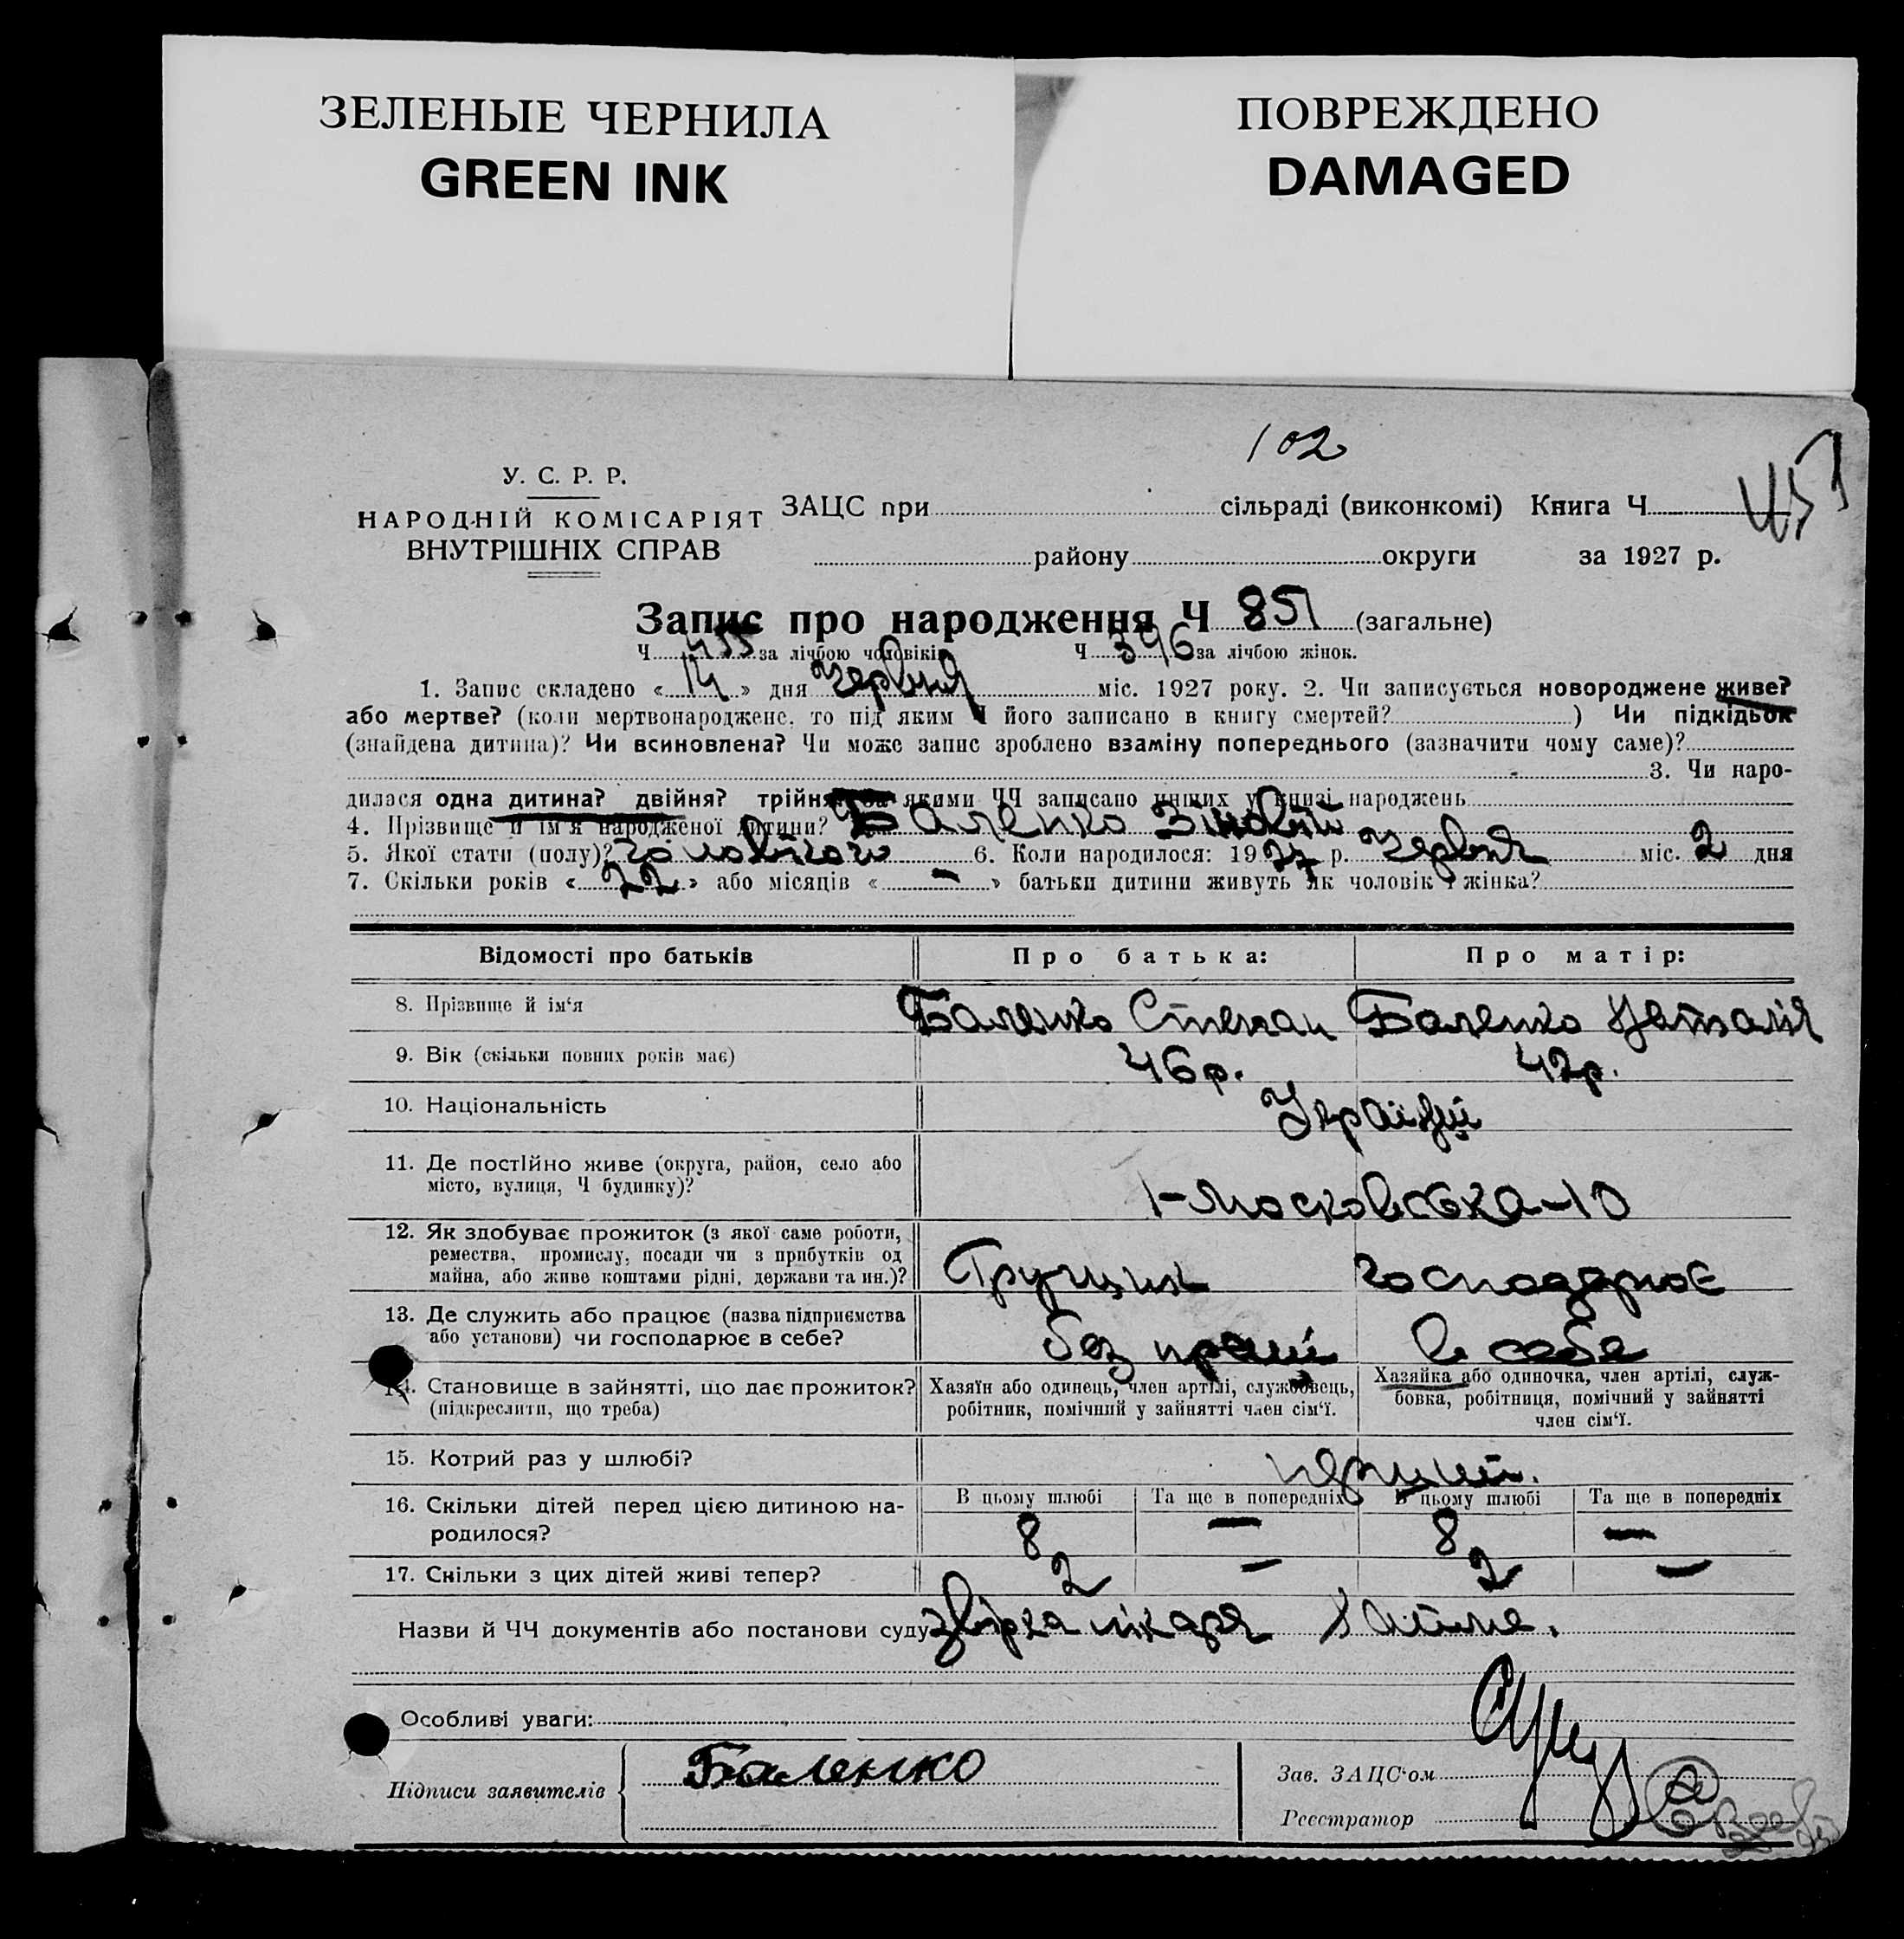 ЗЕЛЕНЫЕ ЧЕРНИЛА
GREEN INK
ПОВРЕЖДЕНО
DAMAGED
102
У. С. Р. Р.
НАРОДНІЙ КОМІСАРІЯТ
ВНУТРІШНІХ СПРАВ
ЗАЦС при сільраді (виконкомі) Книга Ч
району округи за 1927 р.
Запис про народження Ч 851 (загальне)
Ч 455 за лічбою чоловіків Ч 396 за лічбою жінок.
1. Запис складено « 14 » дня червня міс. 1927 року. 2. Чи записується новороджене живе?
або мертве? (коли мертвонароджене, то під яким Ч його записано в книгу смертей? ) Чи підкідьок
(знайдена дитина)? Чи всиновлена? Чи може запис зроблено взаміну попереднього (зазначити чому саме)?
3. Чи наро-
дилася одна дитина? двійня? трійня? За якими ЧЧ записано инших у книзі народжень
4. Прізвище й ім'я народженої дитини? Баленко Зіновій
5. Якої стати (полу)? чоловічого 6. Коли народилося: 1927 р. червня міс. 2 дня
7. Скільки років « 22 » або місяців « — » батьки дитини живуть як чоловік і жінка?
Відомості про батьків Про батька: Про матір:
8. Прізвище й ім'я Баленко Степан Баленко Наталія
9. Вік (скільки повних років має) 46 р. 42 р.
10. Національність Українці
11. Де постійно живе (округа, район, село або
місто, вулиця, Ч будинку)? 1-Московська-10
12. Як здобуває прожиток (з якої саме роботи,
ремества, промислу, посади чи з прибутків од
майна, або живе коштами рідні, держави та ин.)? Грущик господарює
13. Де служить або працює (назва підприємства
або установи) чи господарює в себе? без праці в себе
14. Становище в зайнятті, що дає прожиток?
(підкреслити, що треба)
Хазяїн або одинець, член артілі, службовець,
робітник, помічний у зайнятті член сім'ї.
Хазяйка або одиночка, член артілі, служ-
бовка, робітниця, помічний у зайнятті
член сім'ї.
15. Котрий раз у шлюбі? перший.
16. Скільки дітей перед цією дитиною на-
родилося?
В цьому шлюбі Та ще в попередніх В цьому шлюбі Та ще в попередніх
8 — 8 —
17. Скільки з цих дітей живі тепер? 2 — 2 —
Назви й ЧЧ документів або постанови суду лікаря
Особливі уваги:
Підписи заявителів Баленко
Зав. ЗАЦС'ом
Реєстратор